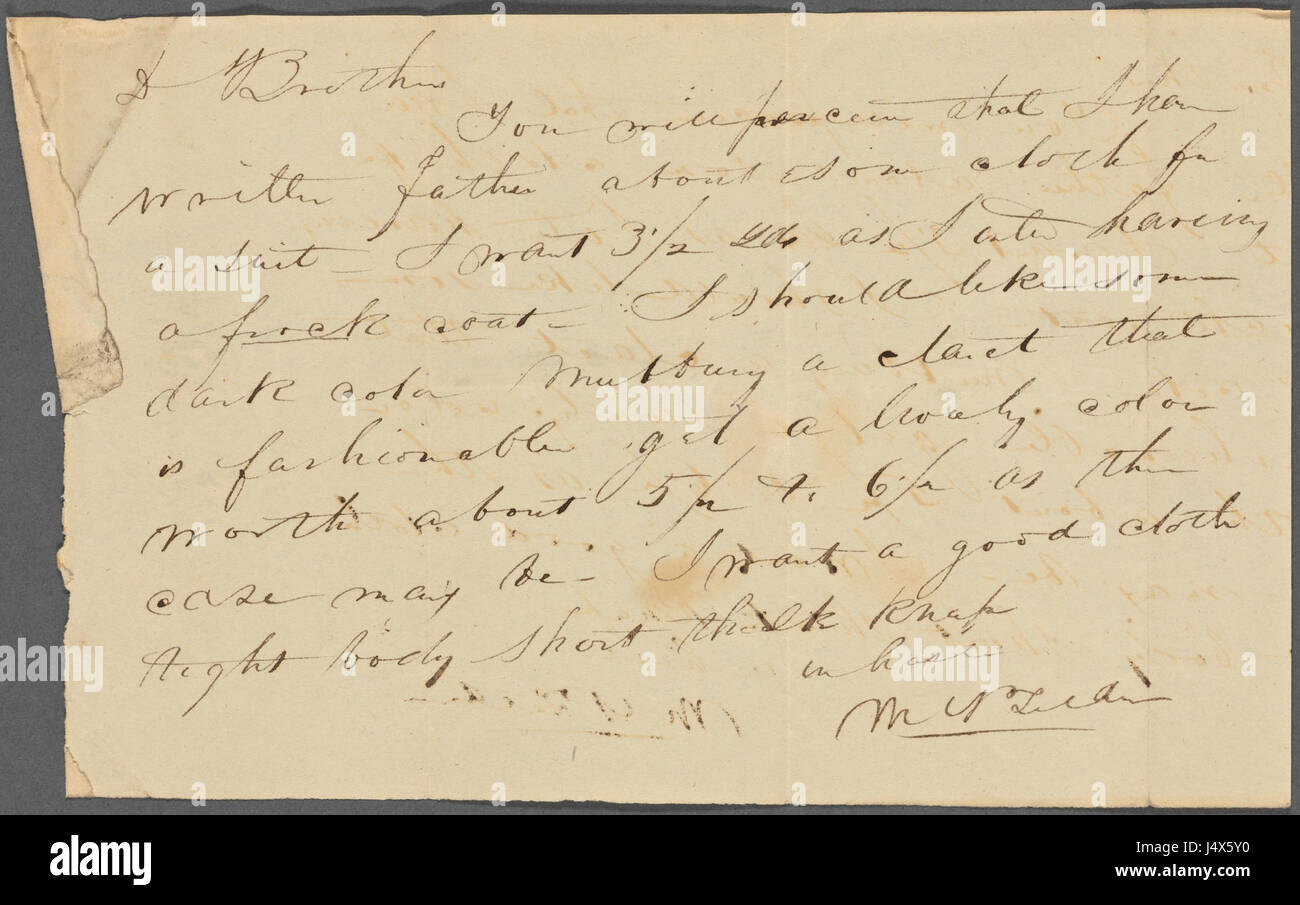 D Brother
You will perceive that I have
written Father about some cloth for
a suit - I want 3 1/2 yds as I having
a frock coat - I should like some
dark color Mulbury a claret that
is fashionable get a lively color
worth about 5/ to 6/ as the
case may be - I want a good cloth
tight body short thick knap
in haste
M N Tilden
alamy
Image ID: J4X5Y0
www.alamy.com